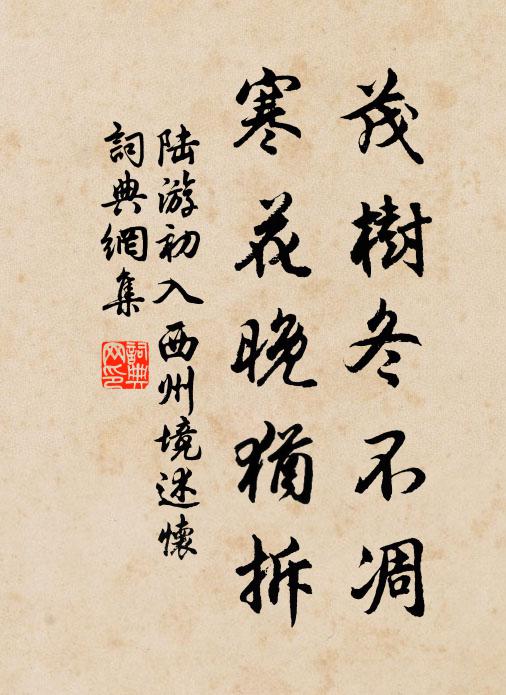 茂樹冬不凋
寒花晚猶拆
陆游初入西州境述懷
詞典網集
詞典網印